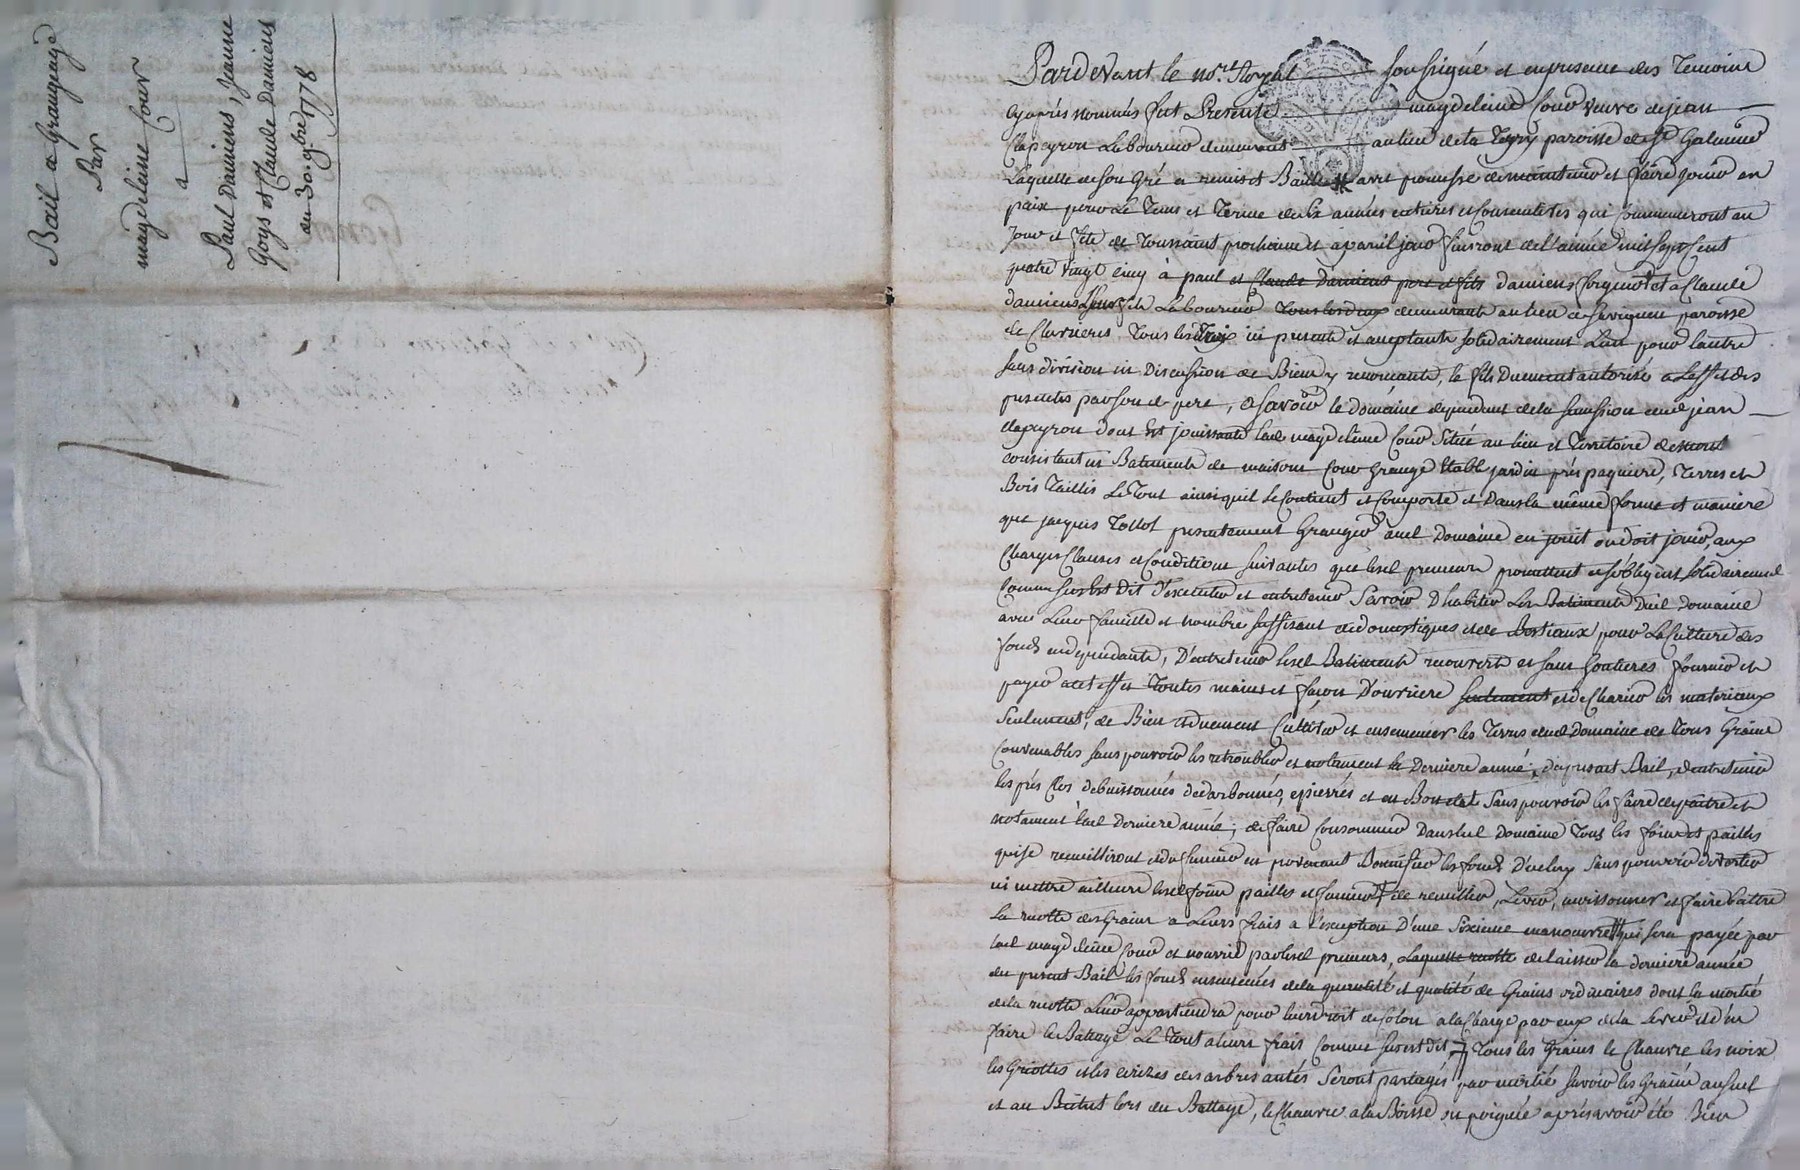 Bail a Grangeage
Par
magdeleine Cour
a
Paul Damiens, Jeanne
Goys et Claude Damiens
du 30 9bre 1778
Pardevant le nore Royal soussigné et en presence des Temoins
cy après nommés fut Presente magdeleine Cour veuve de jean
Clapeyron Laboureur demeurant au lieu de la paroisse de st Galmier
Laquelle de son Gré a remis et Baillé avec promesse de maintenir et faire jouir en
paix pour Le Tems et Terme de six années entieres et Consecutives qui Commenceront au
Jour et fête de Toussaint prochaine et a pareil jour finiront de l'année mil sept Cent
quatre vingt Cinq à paul et Claude Damiens pere et fils damiens et a Claude
damiens fils Laboureur Tous les deux demeurants au lieu de Savigneu paroisse
de Tous les Trois ici presents et acceptants solidairement L'un pour l'autre
sans division ni Discussion de Biens y renonceants, le fils Duement autorisé a L'effet des
presentes par son d pere, Savoir le domaine dependant de la Succession dud jean
clapeyron dont est jouissante lad magdeleine Cour Situé au lieu et Territoire de
consistant en Batiments de maison Cour Grange Etable jardin prés paquiers, Terres et
Bois Taillis Le Tout ainsi qu'il se Contient et Comporte et Dans la même forme et maniere
que jacques presentement Granger aud Domaine en jouit ou doit jouir, aux
Charges Clauses et Conditions suivantes que lesd preneurs promettent et s'obligent solidairement
Comme sus est Dit D'executer et entretenir Savoir D'habiter Les Batiments Dud Domaine
avec Leur famille et nombre suffisant de domestiques et de Bestiaux pour La Culture des
fonds en dependants, D'entretenir lesd Batiments recouverts et sans Goutieres fournir et
payer a cet effet Toutes mains et façon D'ouvriers seulement et de Charier les materiaux
Seulement, de Bien et duement Cultiver et ensemencer les Terres dud Domaine de Tous Grains
Convenables sans pouvoir les retroubler et notament la Derniere année du present Bail, d'entretenir
les prés Clos debuissonnés dedarbonnés, epierrés et en Bon etat Sans pouvoir les faire depaitre et
notament lad Derniere année; de faire Consommer Dans led Domaine Tous les foins et pailles
qui se recueilliront et du fumier en provenant Bonnifier les fonds D'icelui Sans pouvoir divertir
ni mettre ailleurs lesd foins pailles et fumier de recueillir, Lever, moissonner et faire Battre
La recolte des Grains a Leurs frais a l'exception D'une Sixieme manoeuvre qui sera payée par
lad magdeleine Cour et nourrie par lesd preneurs, Laquelle recolte de laisser la derniere année
du present Bail les fonds ensemencés de la quantité et qualité de Grains ordinaires dont la moitié
de la recolte Leur appartiendra pour leur droit de Colon a la Charge par eux de la Lever et d'en
faire le Battage Le Tout a leurs frais Comme sus est dit, Tous les Grains le Chanvre les noix
les Griottes et les cerizes des arbres antés Seront partagés par moitié Savoir les Grains au suel
et au Bichet lors du Battage, le Chanvre a la Boisse ou poignée après avoir été Bien